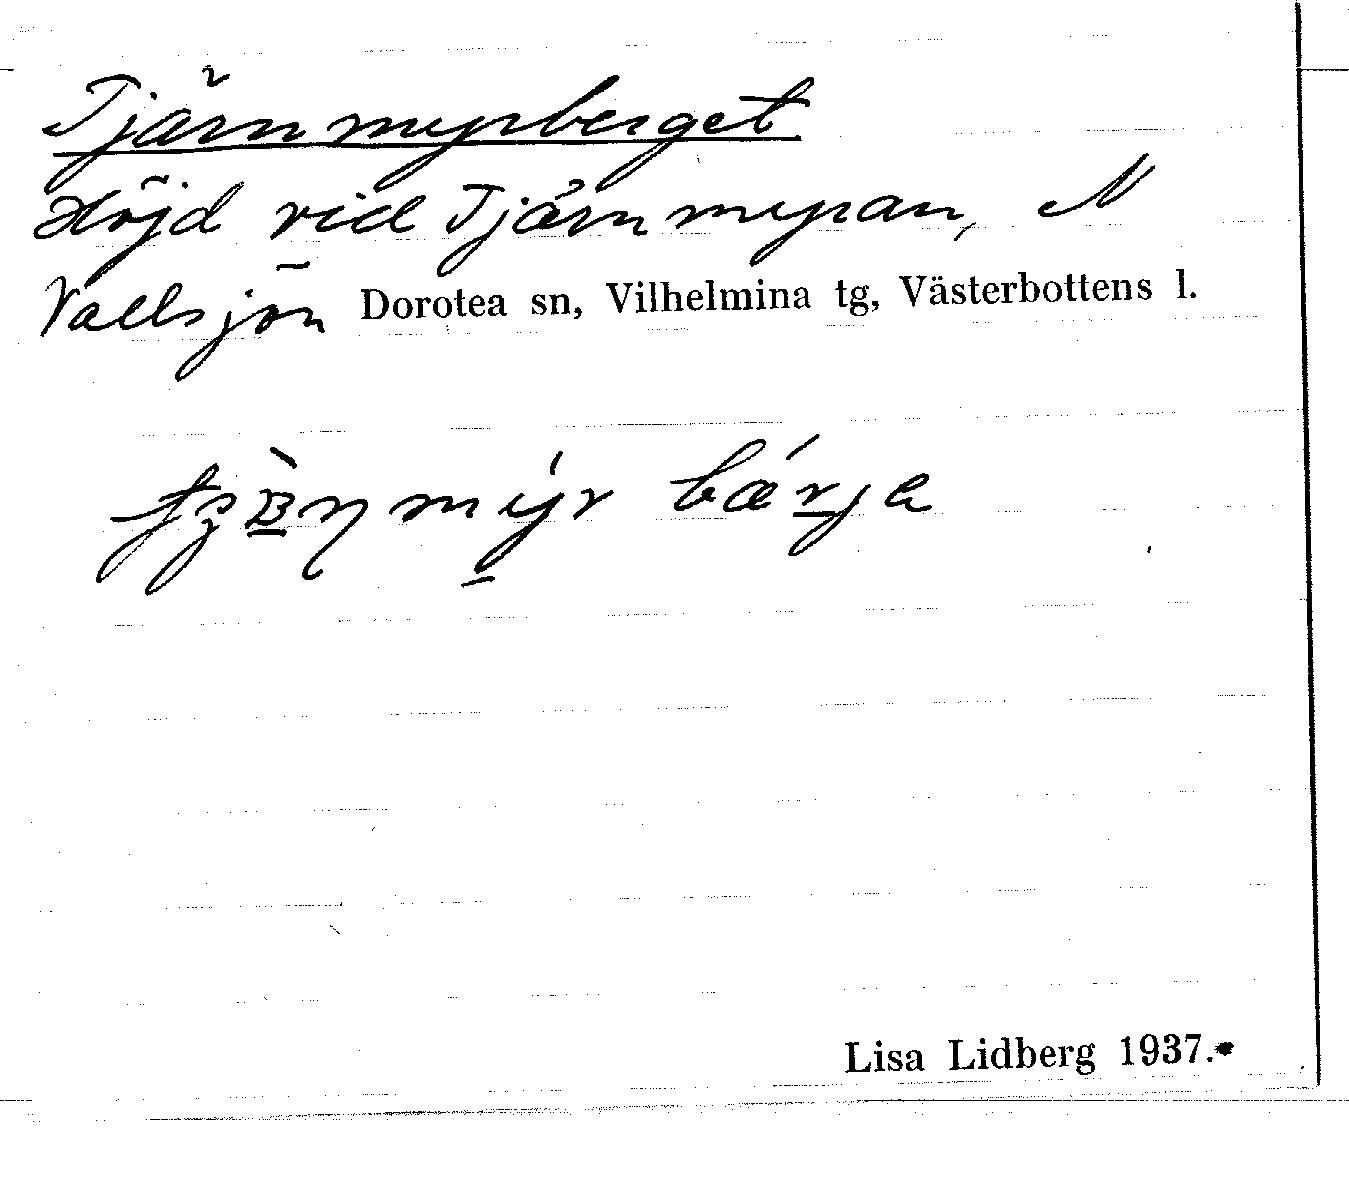 Tjärnmyrberget
Höjd vid Tjärnmyran, N
Vallsjön Dorotea sn, Vilhelmina tg, Västerbottens l.
Lisa Lidberg 1937.